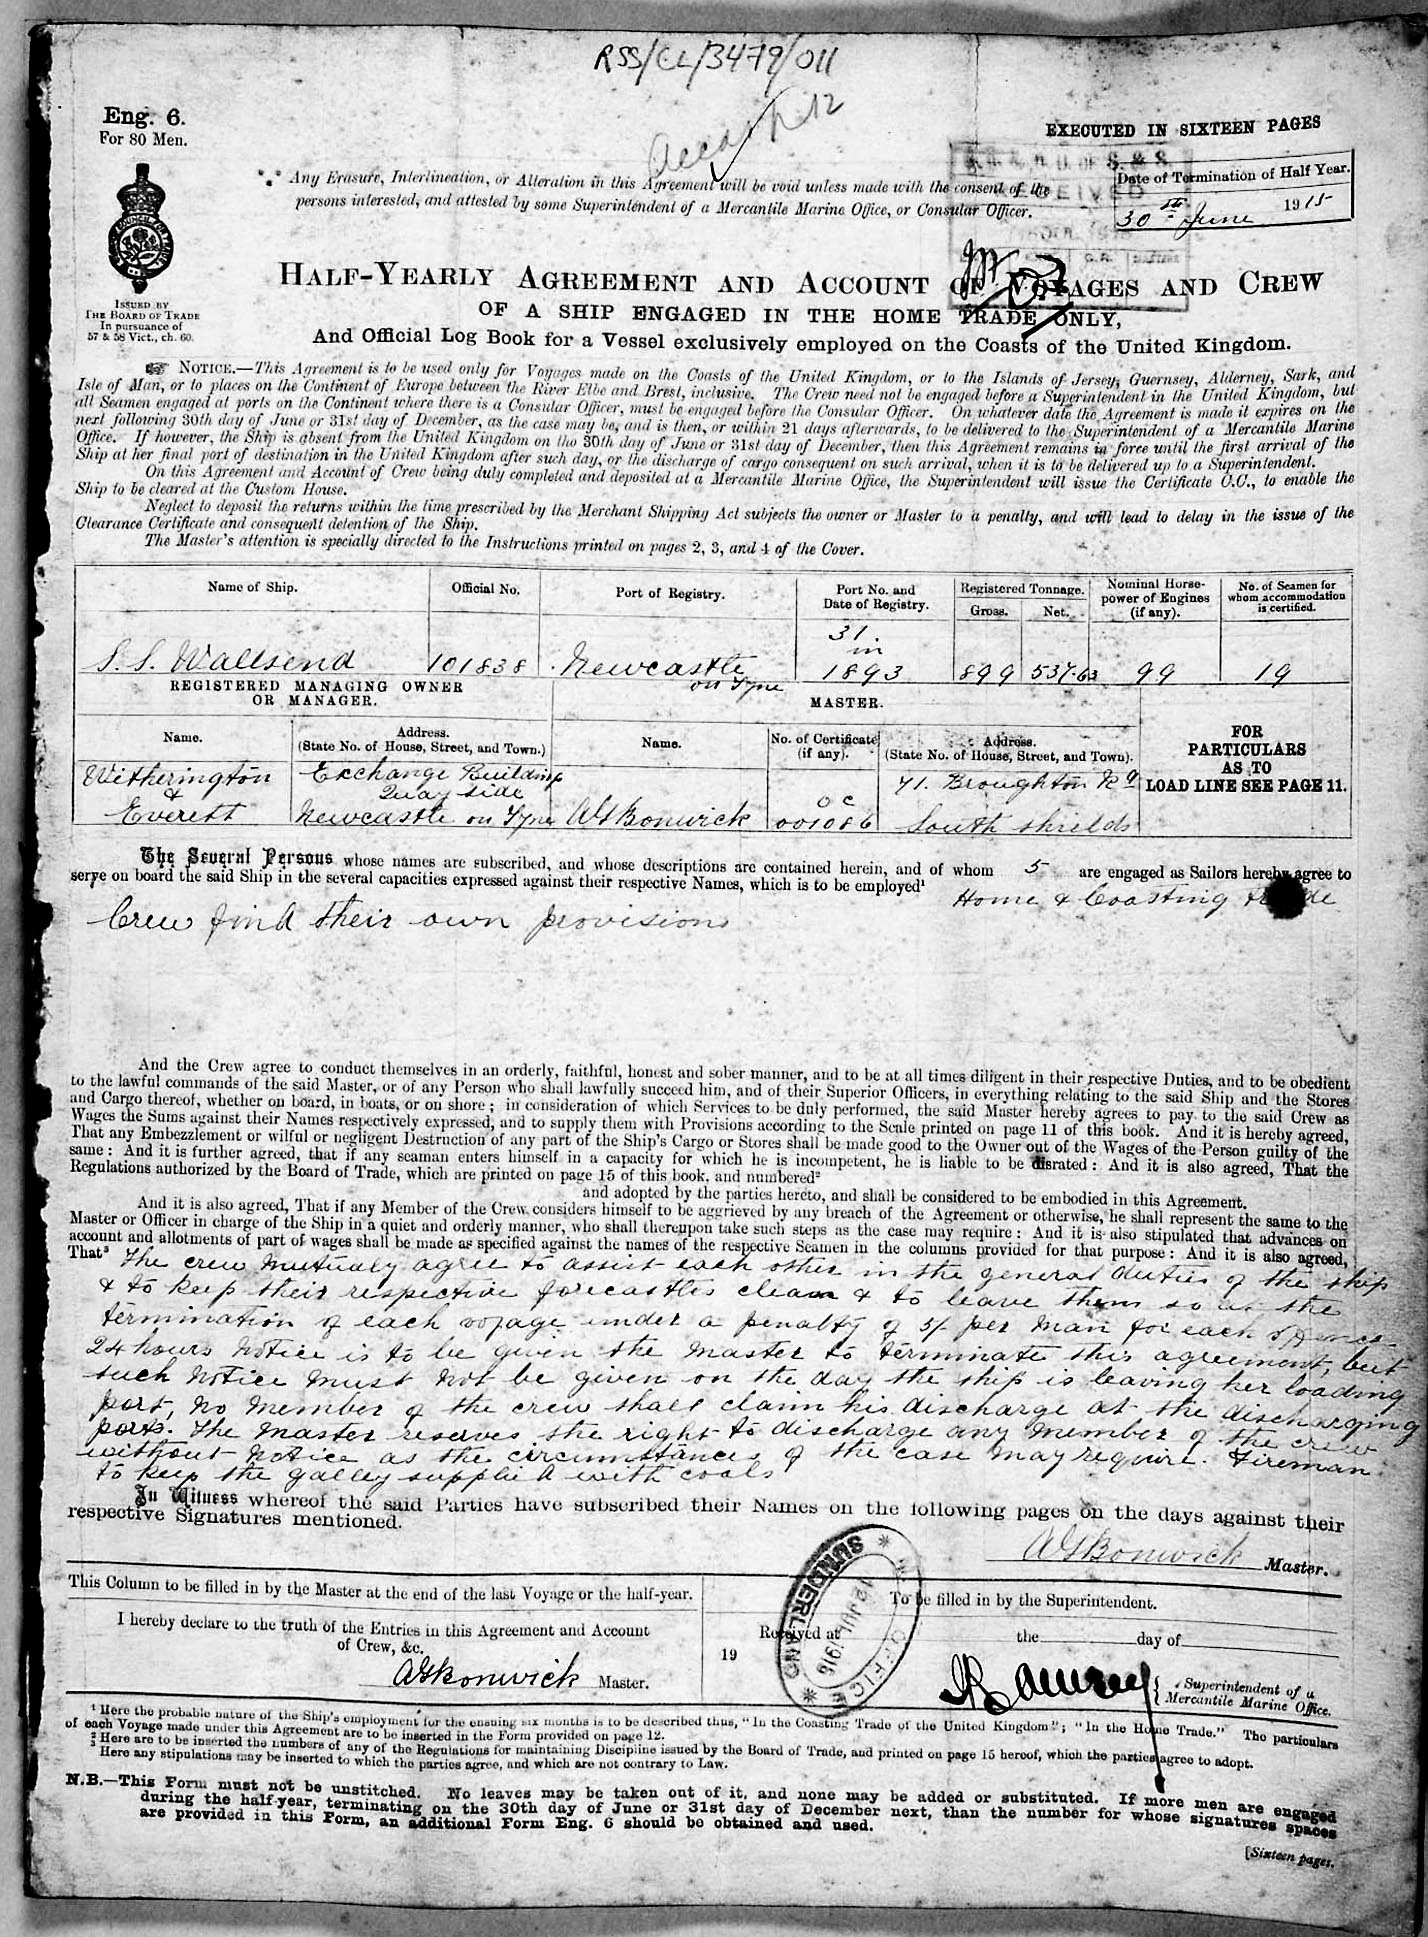 RSS/CL/3479/011
Eng. 6.
For 80 Men.
EXECUTED IN SIXTEEN PAGES
Date of Termination of Half Year.
30th June 1915
Any Erasure, Interlineation, or Alteration in this Agreement will be void unless made with the consent of the
persons interested, and attested by some Superintendent of a Mercantile Marine Office, or Consular Officer.
ISSUED BY
THE BOARD OF TRADE
In pursuance of
57 & 58 Vict., ch. 60.
HALF-YEARLY AGREEMENT AND ACCOUNT OF VOYAGES AND CREW
OF A SHIP ENGAGED IN THE HOME TRADE ONLY,
And Official Log Book for a Vessel exclusively employed on the Coasts of the United Kingdom.
NOTICE.—This Agreement is to be used only for Voyages made on the Coasts of the United Kingdom, or to the Islands of Jersey, Guernsey, Alderney, Sark, and
Isle of Man, or to places on the Continent of Europe between the River Elbe and Brest, inclusive. The Crew need not be engaged before a Superintendent in the United Kingdom, but
all Seamen engaged at ports on the Continent where there is a Consular Officer, must be engaged before the Consular Officer. On whatever date the Agreement is made it expires on the
next following 30th day of June or 31st day of December, as the case may be, and is then, or within 21 days afterwards, to be delivered to the Superintendent of a Mercantile Marine
Office. If however, the Ship is absent from the United Kingdom on the 30th day of June or 31st day of December, then this Agreement remains in force until the first arrival of the
Ship at her final port of destination in the United Kingdom after such day, or the discharge of cargo consequent on such arrival, when it is to be delivered up to a Superintendent.
On this Agreement and Account of Crew being duly completed and deposited at a Mercantile Marine Office, the Superintendent will issue the Certificate C.C., to enable the
Ship to be cleared at the Custom House.
Neglect to deposit the returns within the time prescribed by the Merchant Shipping Act subjects the owner or Master to a penalty, and will lead to delay in the issue of the
Clearance Certificate and consequent detention of the Ship.
The Master's attention is specially directed to the Instructions printed on pages 2, 3, and 4 of the Cover.
Name of Ship. Official No. Port of Registry. Port No. and Date of Registry. Registered Tonnage. Gross. Net. Nominal Horse-power of Engines (if any). No. of Seamen for whom accommodation is certified.
S.S. Wallsend 101838 Newcastle on Tyne 31. in 1893 899 537.63 99 19
REGISTERED MANAGING OWNER
OR MANAGER.
MASTER.
Name. Address. (State No. of House, Street, and Town.) Name. No. of Certificate (if any). Address. (State No. of House, Street, and Town).
FOR
PARTICULARS
AS TO
LOAD LINE SEE PAGE 11.
Witherington Exchange Buildings 71. Broughton Rd
& Quay side OC
Everett Newcastle on Tyne WG Bonwick 001086 South Shields
The Several Persons whose names are subscribed, and whose descriptions are contained herein, and of whom 5 are engaged as Sailors hereby agree to
serve on board the said Ship in the several capacities expressed against their respective Names, which is to be employed¹
Home & Coasting Trade
Crew find their own provisions
And the Crew agree to conduct themselves in an orderly, faithful, honest and sober manner, and to be at all times diligent in their respective Duties, and to be obedient
to the lawful commands of the said Master, or of any Person who shall lawfully succeed him, and of their Superior Officers, in everything relating to the said Ship and the Stores
and Cargo thereof, whether on board, in boats, or on shore; in consideration of which Services to be duly performed, the said Master hereby agrees to pay to the said Crew as
Wages the Sums against their Names respectively expressed, and to supply them with Provisions according to the Scale printed on page 11 of this book. And it is hereby agreed,
That any Embezzlement or wilful or negligent Destruction of any part of the Ship's Cargo or Stores shall be made good to the Owner out of the Wages of the Person guilty of the
same: And it is further agreed, that if any seaman enters himself in a capacity for which he is incompetent, he is liable to be disrated: And it is also agreed, That the
Regulations authorized by the Board of Trade, which are printed on page 15 of this book, and numbered²
and adopted by the parties hereto, and shall be considered to be embodied in this Agreement.
And it is also agreed, That if any Member of the Crew considers himself to be aggrieved by any breach of the Agreement or otherwise, he shall represent the same to the
Master or Officer in charge of the Ship in a quiet and orderly manner, who shall thereupon take such steps as the case may require: And it is also stipulated that advances on
account and allotments of part of wages shall be made as specified against the names of the respective Seamen in the columns provided for that purpose: And it is also agreed,
That³ The crew mutualy agree to assist each other in the general duties of the ship
& to keep their respective forecastles clean & to leave them so at the
termination of each voyage under a penalty of 5/- per man for each offence.
24 hours notice is to be given the master to terminate this agreement, but
such notice must not be given on the day the ship is leaving her loading
port, no member of the crew shall claim his discharge at the discharging
ports. The master reserves the right to discharge any member of the crew
without notice as the circumstances of the case may require. Fireman
to keep the galley supplied with coals
In Witness whereof the said Parties have subscribed their Names on the following pages on the days against their
respective Signatures mentioned.
WG Bonwick Master.
This Column to be filled in by the Master at the end of the last Voyage or the half-year.
I hereby declare to the truth of the Entries in this Agreement and Account
of Crew, &c.
WG Bonwick Master.
To be filled in by the Superintendent.
Received at the day of
19
SUNDERLAND
OFFICE
Superintendent of a
Mercantile Marine Office.
¹ Here the probable nature of the Ship's employment for the ensuing six months is to be described thus, "In the Coasting Trade of the United Kingdom"; "In the Home Trade." The particulars
of each Voyage made under this Agreement are to be inserted in the Form provided on page 12.
² Here are to be inserted the numbers of any of the Regulations for maintaining Discipline issued by the Board of Trade, and printed on page 15 hereof, which the parties agree to adopt.
³ Here any stipulations may be inserted to which the parties agree, and which are not contrary to Law.
N.B.—This Form must not be unstitched. No leaves may be taken out of it, and none may be added or substituted. If more men are engaged
during the half-year, terminating on the 30th day of June or 31st day of December next, than the number for whose signatures spaces
are provided in this Form, an additional Form Eng. 6 should be obtained and used.
[Sixteen pages.